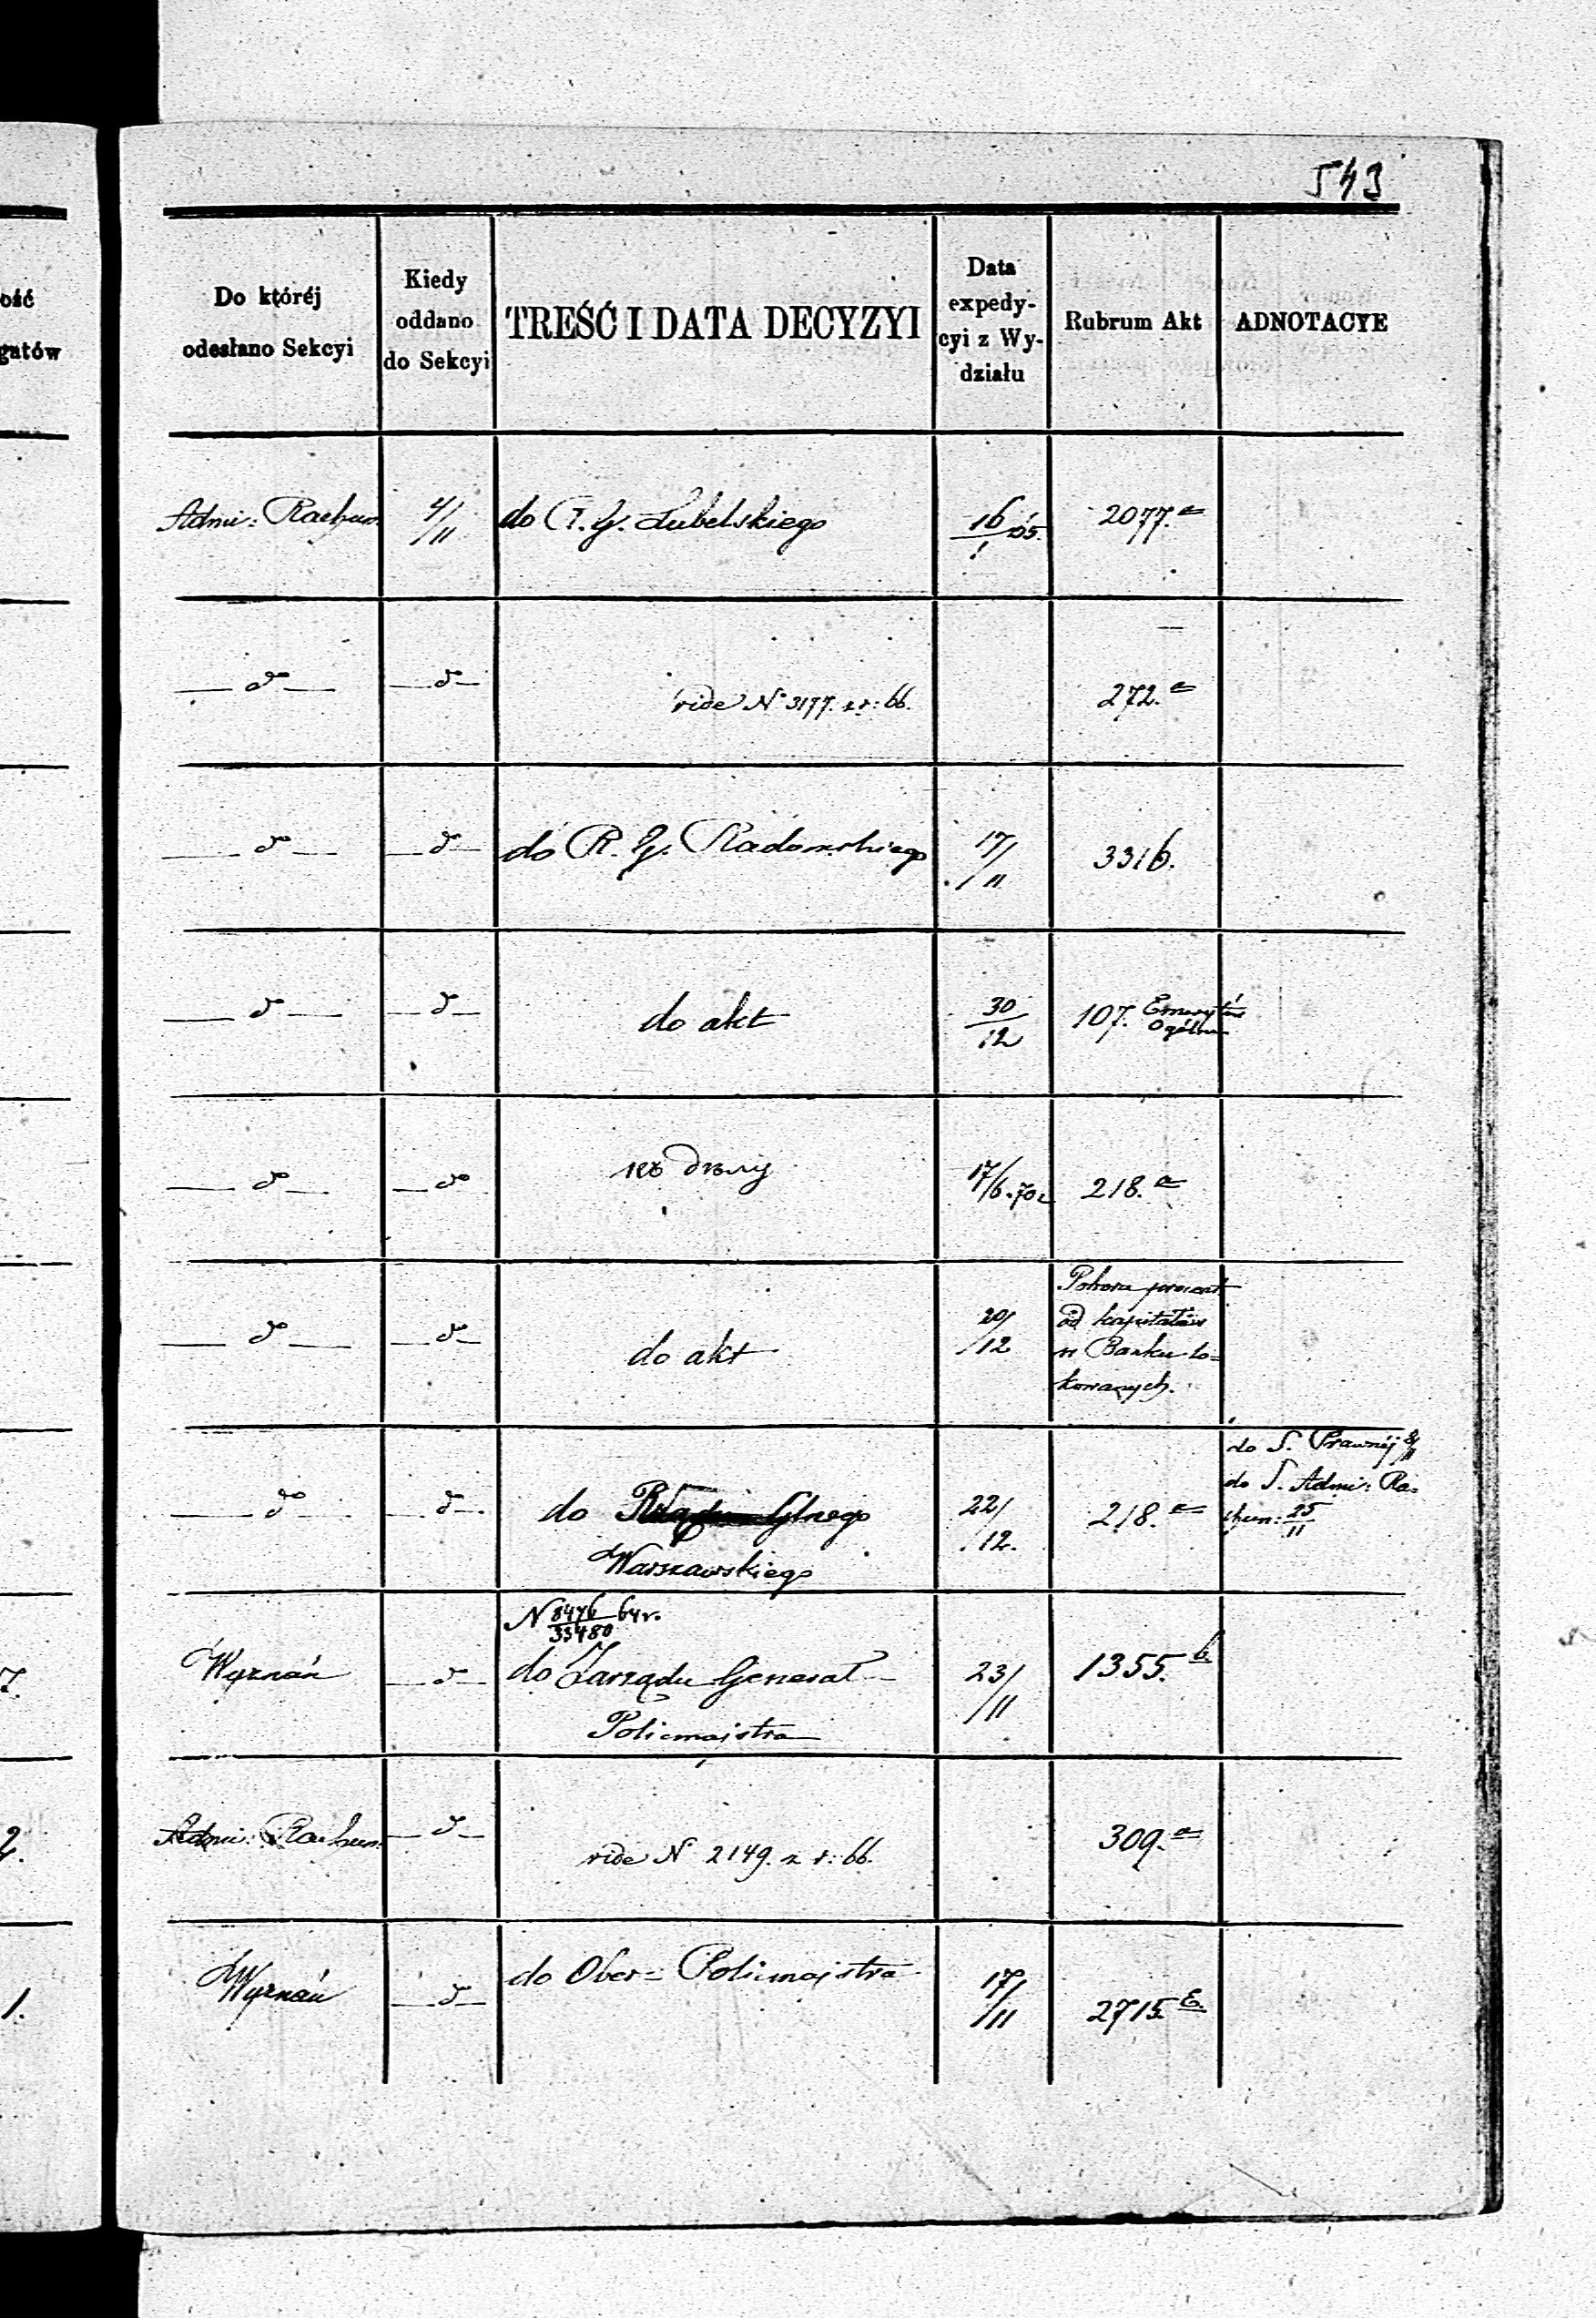 543
ość
gatów
Do któréj
odesłano Sekcyi
Kiedy
oddano
do Sekcyi
TREŚĆ I DATA DECYZYI
Data
expedy-
cyi z Wy-
działu
Rubrum Akt
ADNOTACYE
Admi: Rachun. 4/11 do R. G. Lubelskiego 16/1 65. 2077. a
— do — — do — vide N° 3177. z r: 66. 272. a
— do — — do — do R. G. Radomskiego 17/11 3316.
— do — — do — do akt 30/12 107. Emerytów
Ogólne
— do — — do 17/6. 70 218. a
— do — — do — do akt 20/12 procent
od kapitałów
w Banku lo=
kowanych.
— do — — do — do Glnego
Warszawskiego 22/12. 218. a
do S. Prawnéj 8/11
do S. Admi: Ra=
chun: 25/11
7.
N 8476/33480 64 r.
Wyznań — do — do Zarządu Generał
Policmajstra 23/11 1355. b
2.
Admi: Rachun: — do — vide N 2149. z r: 66. 309. a
1.
Wyznań — do — do Ober= Policmajstra 17/11 2715. E.